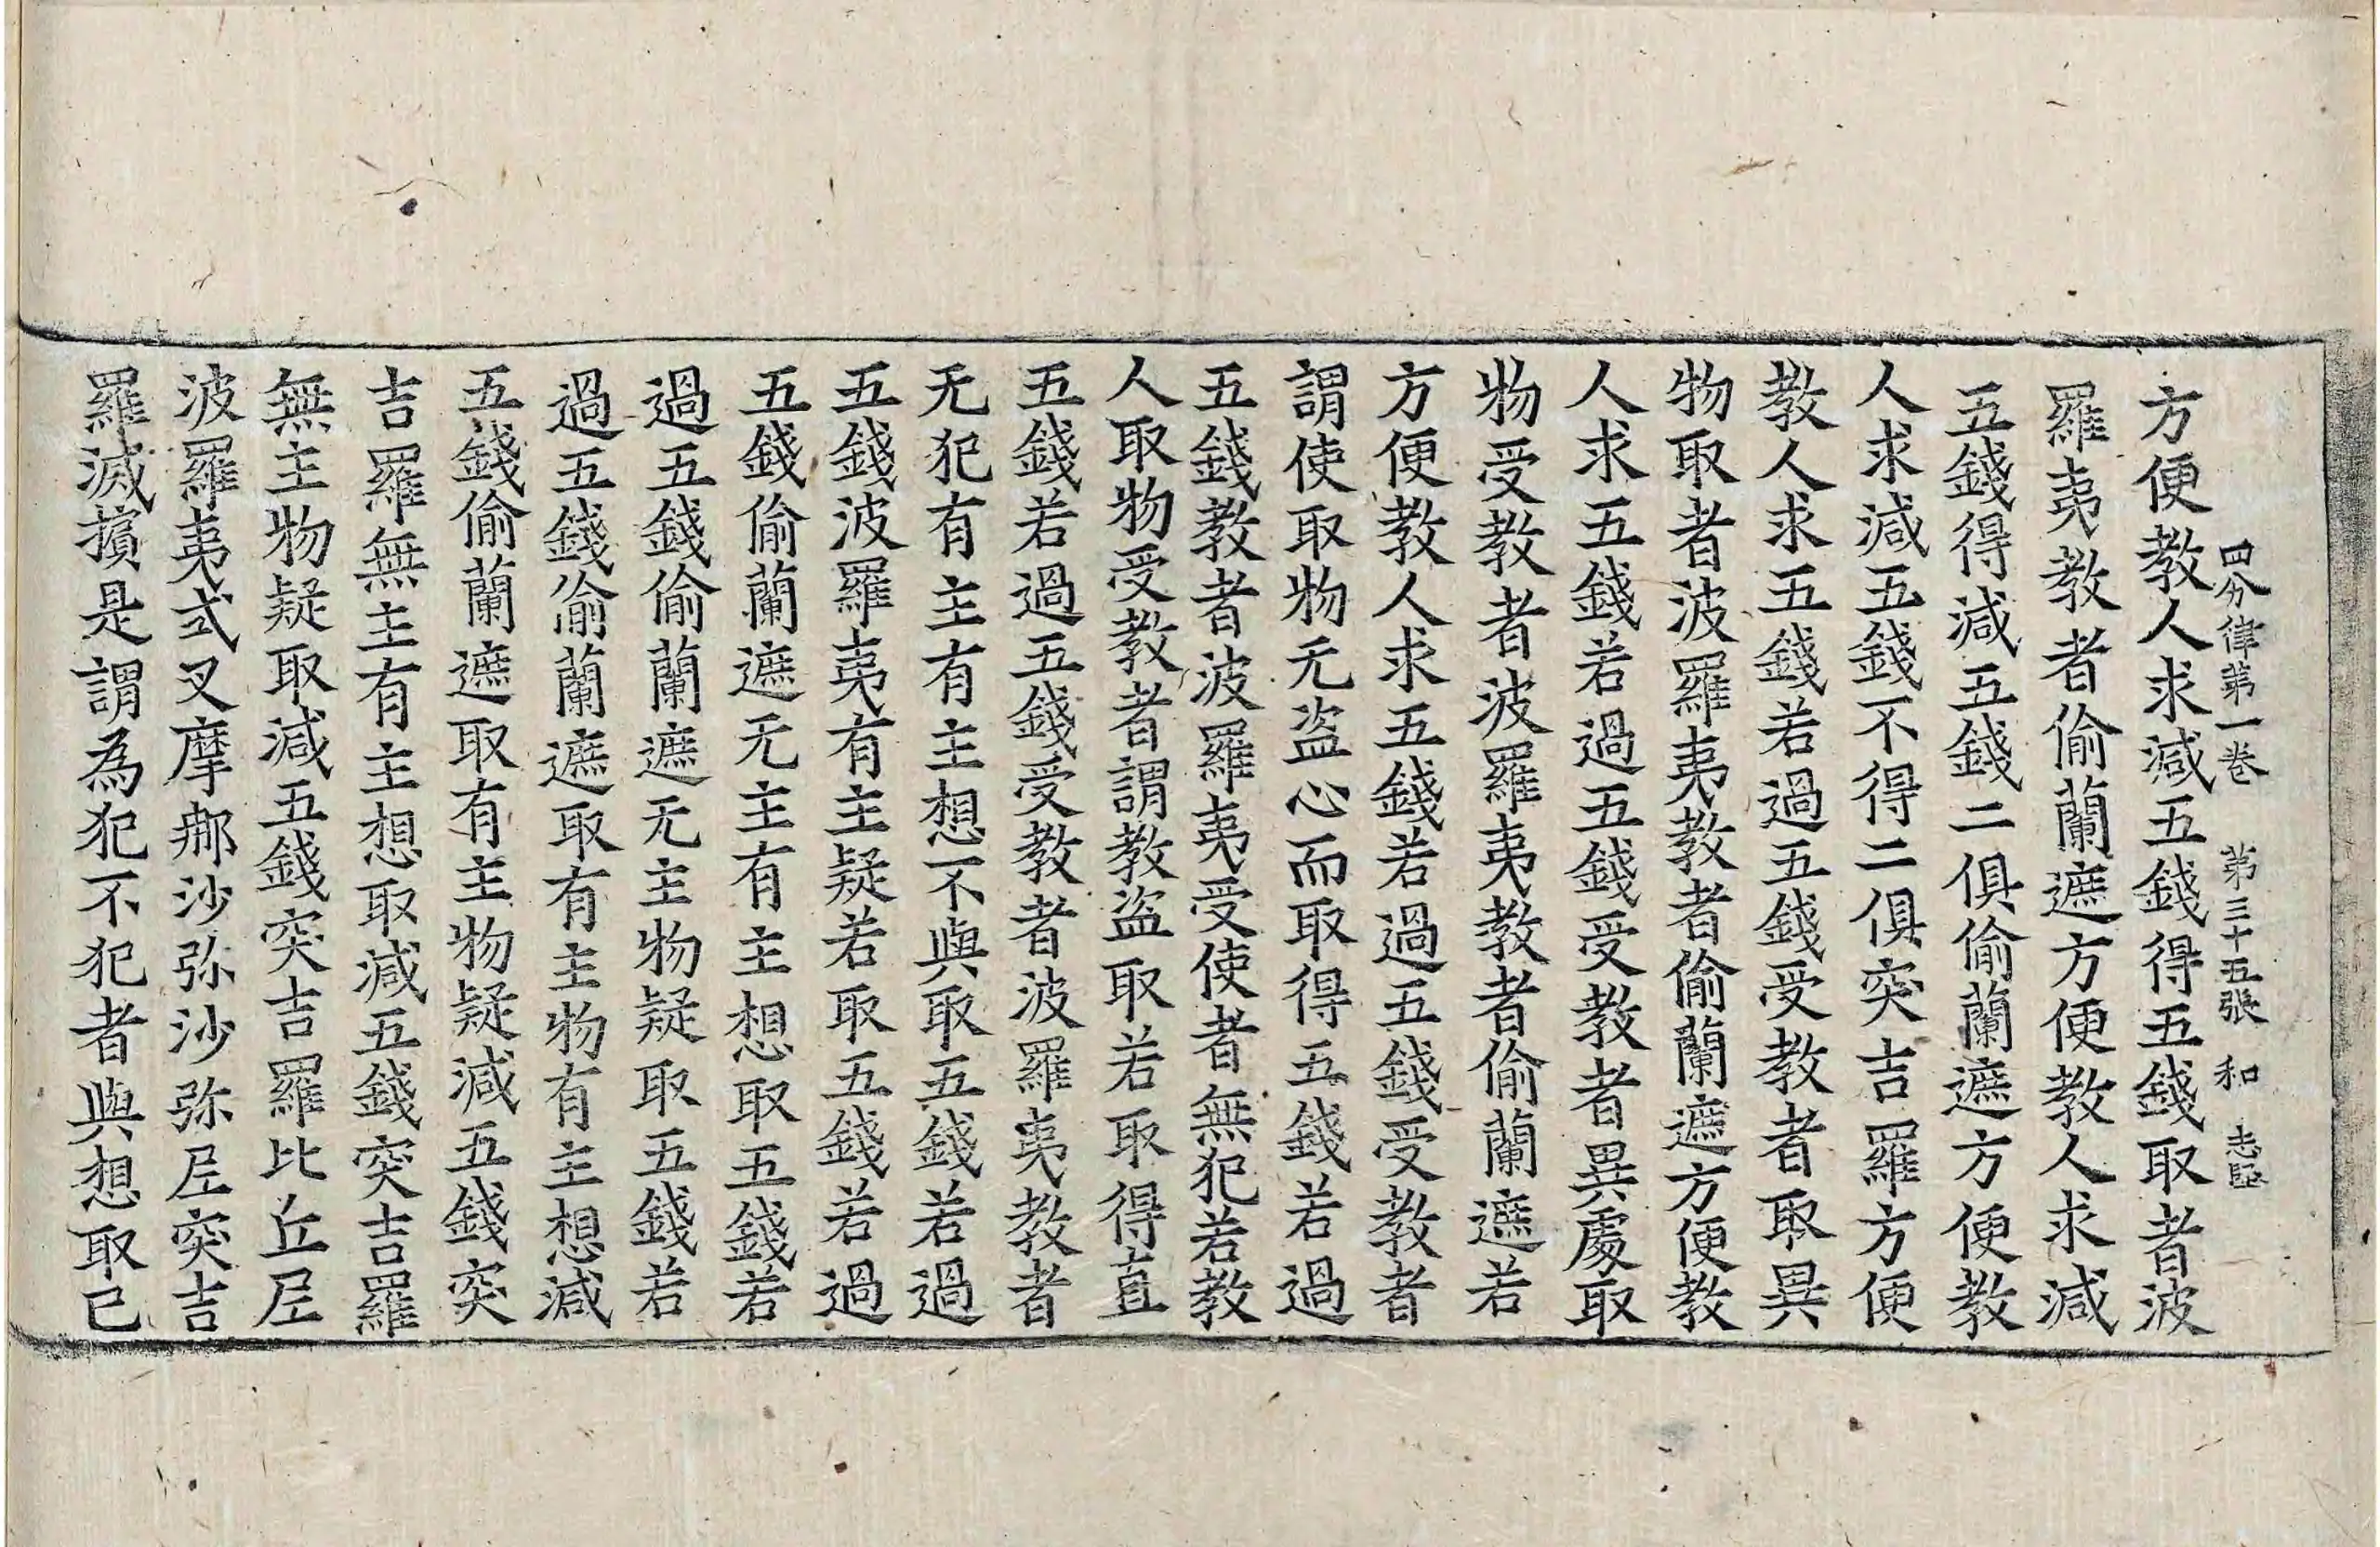 四分律第一卷 第三十五張 和
方便教人求減五錢得五錢取者波
羅夷教者偷蘭遮方便教人求減
五錢得減五錢二俱偷蘭遮方便教
人求減五錢不得二俱突吉羅方便
教人求五錢若過五錢受教者取異
物取者波羅夷教者偷蘭遮方便教
人求五錢若過五錢受教者異處取
物受教者波羅夷教者偷蘭遮若
方便教人求五錢若過五錢受教者
謂使取物无盜心而取得五錢若過
五錢教者波羅夷受使者無犯若教
人取物受教者謂教盜取若取得直
五錢若過五錢受教者波羅夷教者
无犯有主有主想不與取五錢若過
五錢波羅夷有主疑若取五錢若過
五錢偷蘭遮无主有主想取五錢若
過五錢偷蘭遮无主物疑取五錢若
過五錢偷蘭遮取有主物有主想減
五錢偷蘭遮取有主物疑減五錢突
吉羅無主有主想取減五錢突吉羅
無主物疑取減五錢突吉羅比丘尼
波羅夷式叉摩那沙弥沙弥尼突吉
羅滅擯是謂為犯不犯者與想取已